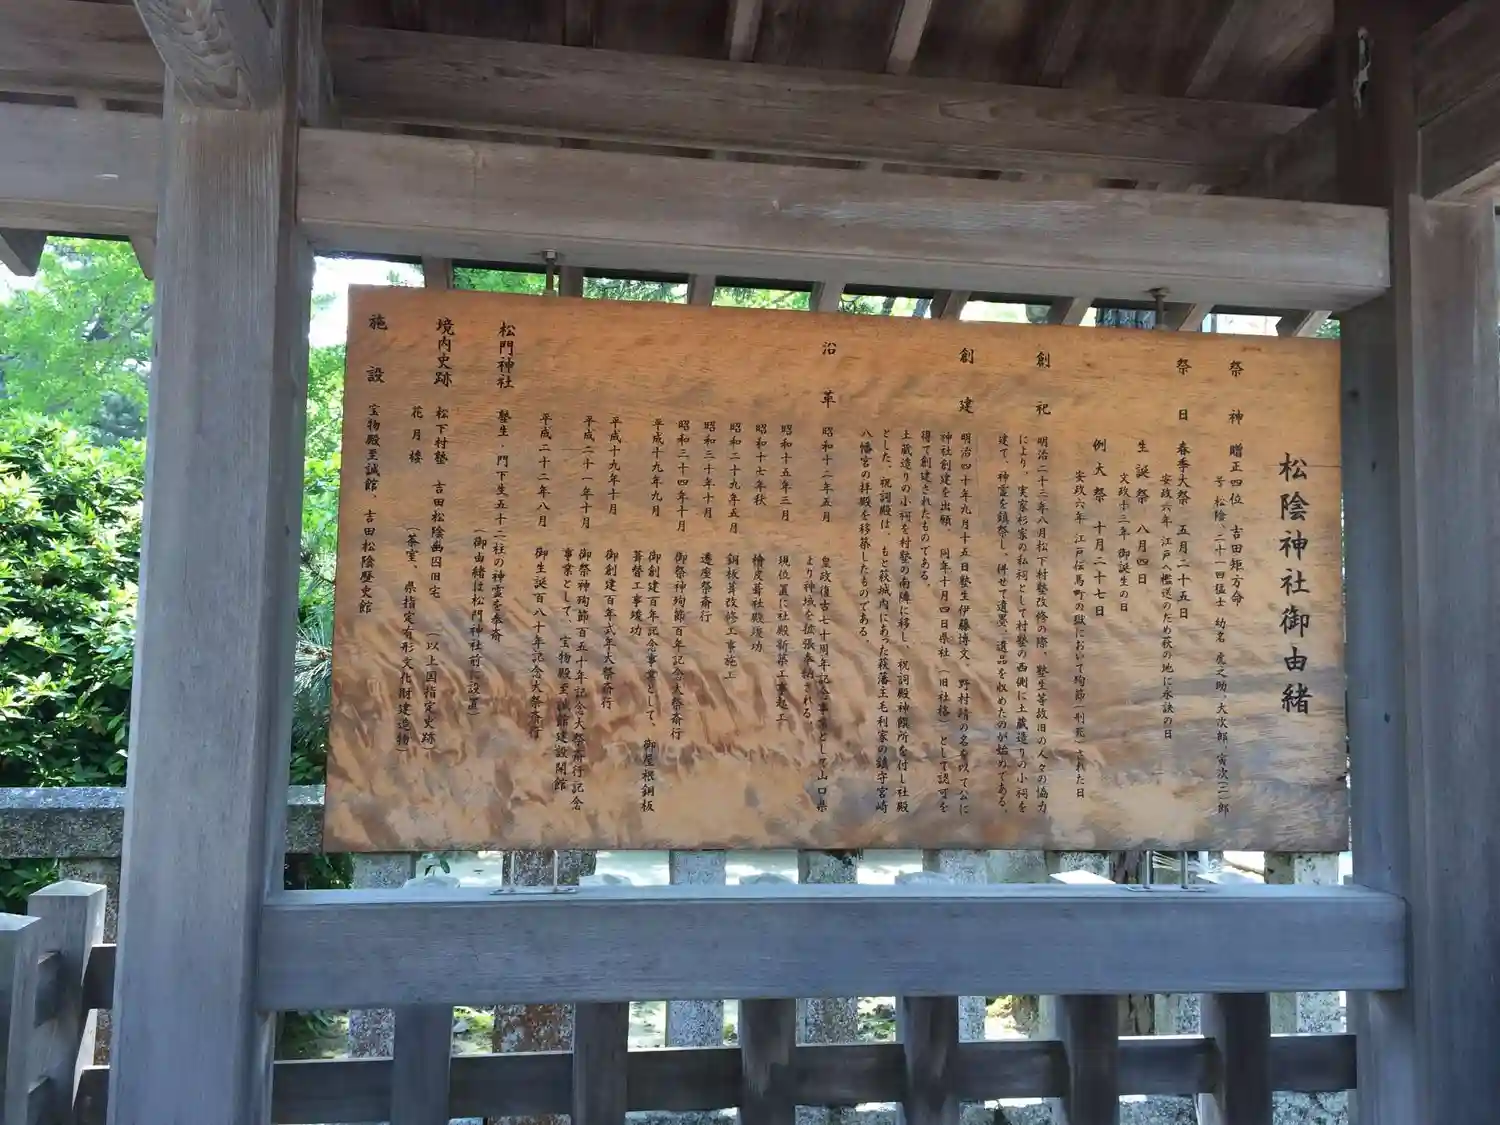 松陰神社御由緒
祭神 贈正四位 吉田矩方命
号 松陰、二十一回猛士 幼名 虎之助、大次郎、寅次(二)郎
祭日 春季大祭 五月二十五日
安政六年 江戸へ檻送のため萩の地に永訣の日
生誕祭 八月四日
文政十三年 御誕生の日
例大祭 十月二十七日
安政六年 江戸伝馬町の獄において殉節(刑死)された日
創祀 明治二十三年八月松下村塾改修の際、塾生等故旧の人々の協力
により、実家杉家の私祠として村塾の西側に土蔵造りの小祠を
建て、神霊を鎮祭し、併せて遺墨、遺品を収めたのが始めである。
創建 明治四十年九月十五日塾生伊藤博文、野村靖の名を以て公に
神社創建を出願、同年十月四日県社(旧社格)として認可を
得て創建されたものである。
土蔵造りの小祠を村塾の南隣に移し、祝詞殿神饌所を付し社殿
とした。祝詞殿は、もと萩城内にあった萩藩主毛利家の鎮守宮崎
八幡宮の拝殿を移築したものである。
沿革 昭和十二年五月 皇政復古七十周年記念事業として山口県
より神域を拡張奉納される。
昭和十五年三月 現位置に社殿新築工事起工
昭和十七年秋 檜皮葺社殿竣功
昭和二十九年五月 銅板葺改修工事施工
昭和三十年十月 遷座祭斎行
昭和三十四年十月 御祭神殉節百年記念大祭斎行
平成十九年九月 御創建百年記念事業として、御屋根銅板
葺替工事竣功
平成十九年十月 御創建百年式年大祭斎行
平成二十一年十月 御祭神殉節百五十年記念大祭斎行記念
事業として、宝物殿至誠館建設開館
平成二十二年八月 御生誕百八十年記念大祭斎行
松門神社 塾生・門下生五十二柱の神霊を奉斎
(御由緒板松門神社前に設置)
境内史跡 松下村塾 吉田松陰幽囚旧宅 (以上国指定史跡)
花月楼 (茶室、県指定有形文化財建造物)
施設 宝物殿至誠館、吉田松陰歴史館